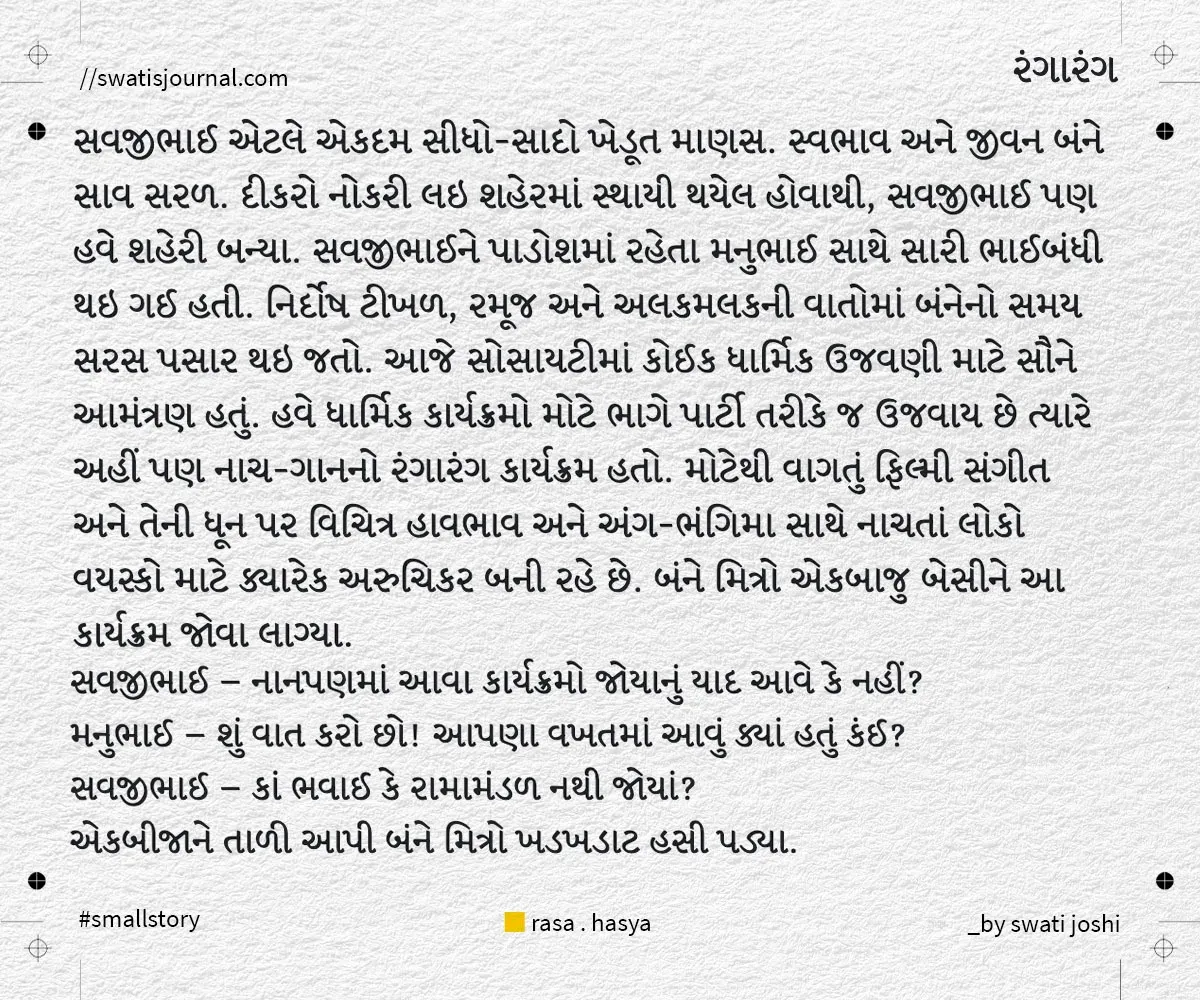 //swatisjournal.com
રંગારંગ
સવજીભાઈ એટલે એકદમ સીધો-સાદો ખેડૂત માણસ. સ્વભાવ અને જીવન બંને
સાવ સરળ. દીકરો નોકરી લઇ શહેરમાં સ્થાયી થયેલ હોવાથી, સવજીભાઈ પણ
હવે શહેરી બન્યા. સવજીભાઈને પાડોશમાં રહેતા મનુભાઈ સાથે સારી ભાઈબંધી
થઇ ગઈ હતી. નિર્દોષ ટીખળ, રમૂજ અને અલકમલકની વાતોમાં બંનેનો સમય
સરસ પસાર થઇ જતો. આજે સોસાયટીમાં કોઈક ધાર્મિક ઉજવણી માટે સૌને
આમંત્રણ હતું. હવે ધાર્મિક કાર્યક્રમો મોટે ભાગે પાર્ટી તરીકે જ ઉજવાય છે ત્યારે
અહીં પણ નાચ-ગાનનો રંગારંગ કાર્યક્રમ હતો. મોટેથી વાગતું ફિલ્મી સંગીત
અને તેની ધૂન પર વિચિત્ર હાવભાવ અને અંગ-ભંગિમા સાથે નાચતાં લોકો
વયસ્કો માટે ક્યારેક અરુચિકર બની રહે છે. બંને મિત્રો એકબાજુ બેસીને આ
કાર્યક્રમ જોવા લાગ્યા.
સવજીભાઈ – નાનપણમાં આવા કાર્યક્રમો જોયાનું યાદ આવે કે નહીં?
મનુભાઈ – શું વાત કરો છો! આપણા વખતમાં આવું ક્યાં હતું કંઈ?
સવજીભાઈ – કાં ભવાઈ કે રામામંડળ નથી જોયાં?
એકબીજાને તાળી આપી બંને મિત્રો ખડખડાટ હસી પડ્યા.
#smallstory
rasa . hasya
_by swati joshi